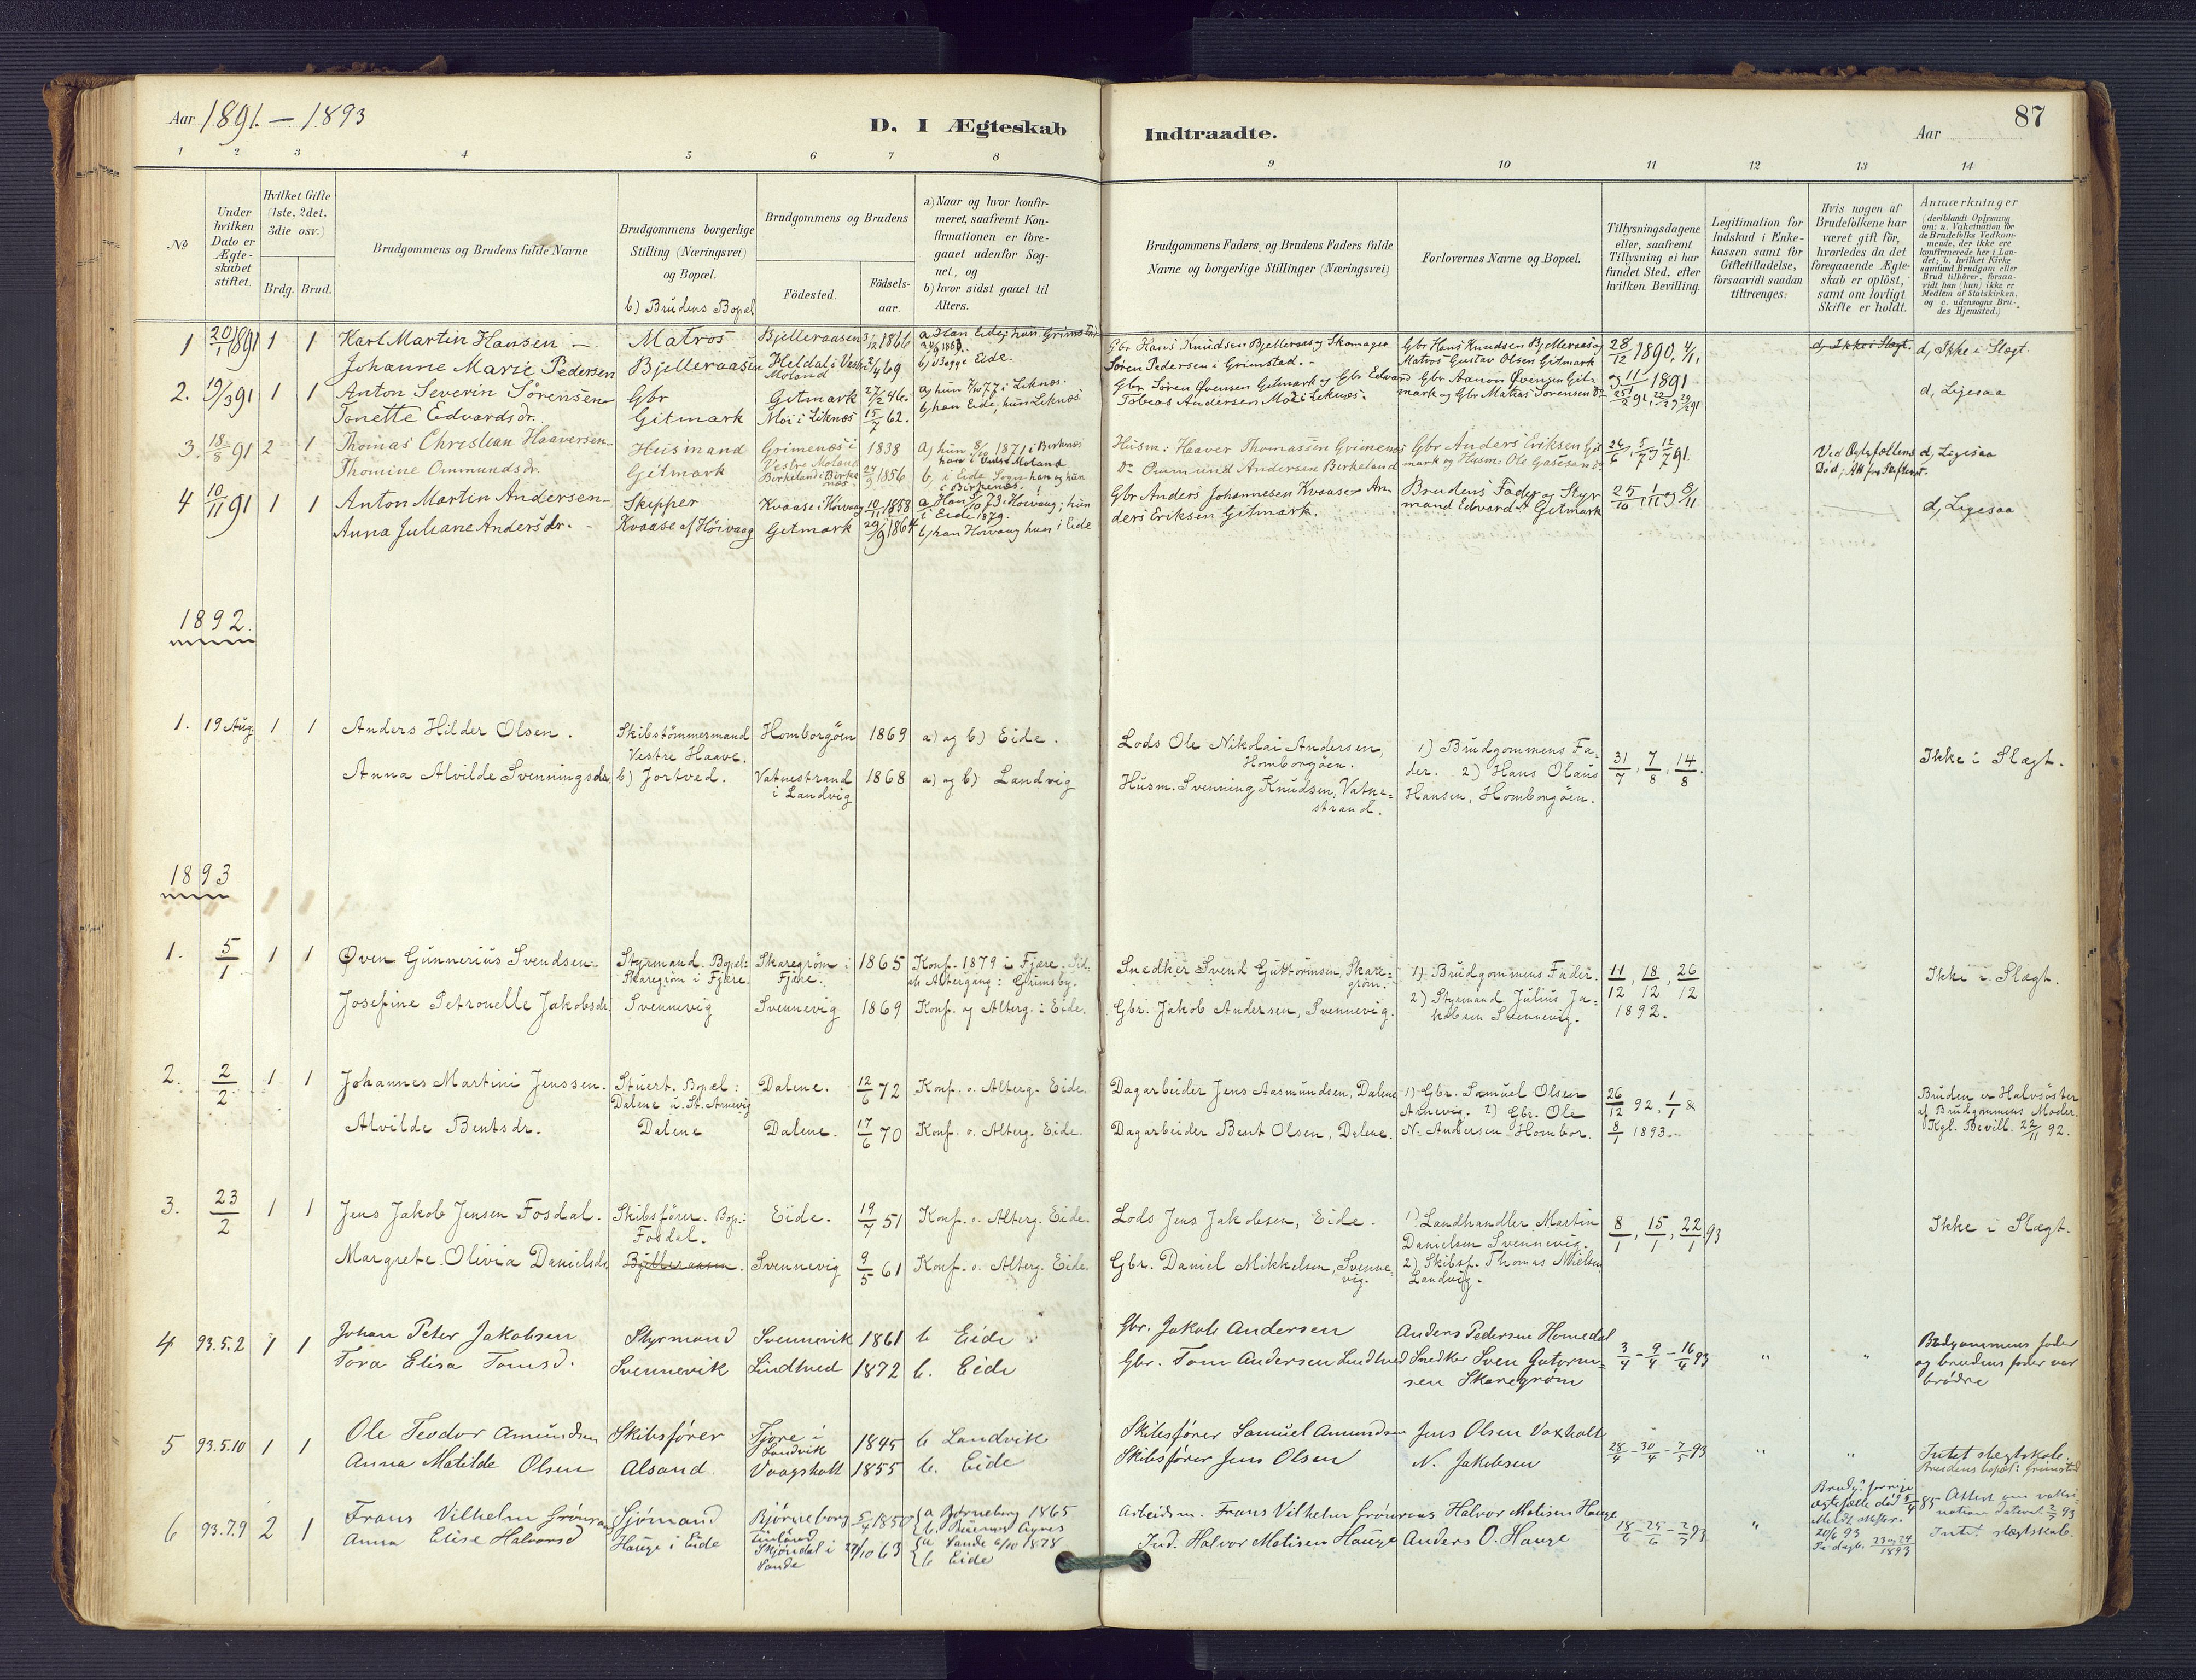 Aar 1891. – 1893
D. I Ægteskab
Indtraadte.
Aar
87
1 2 3 4 5 6 7 8 9 10 11 12 13 14
No
Under hvilken Dato er Ægteskabet stiftet.
Hvilket Gifte (1ste, 2det, 3die osv.)
Brdg. Brud.
Brudgommens og Brudens fulde Navne
Brudgommens borgerlige Stilling (Næringsvei) og Bopæl.
b) Brudens Bopæl
Brudgommens og Brudens
Födested.
Födsels-aar.
a) Naar og hvor konfirmeret, saafremt Konfirmationen er foregaaet udenfor Sognet, og
b) hvor sidst gaaet til Alters.
Brudgommens Faders og Brudens Faders fulde Navne og borgerlige Stillinger (Næringsvei)
Forlovernes Navne og Bopæl.
Tillysningsdagene eller, saafremt Tillysning ei har fundet Sted, efter hvilken Bevilling.
Legitimation for Indskud i Enkekassen samt for Giftetilladelse, forsaavidt saadan tiltrænges:
Hvis nogen af Brudefolkene har været gift för, hvorledes da det foregaaende Ægteskab er oplöst, samt om lovligt Skifte er holdt.
Anmærkninger (deriblandt Oplysning om: a. Vakcination för de Brudefolks Vedkommende, der ikke ere konfirmerede her i Landet; b. hvilket Kirkesamfund Brudgom eller Brud tilhörer, forsaavidt han (hun) ikke er Medlem af Statskirken, og c. udensogns Brudes Hjemsted.)
1 20/1 1891 1 1 Karl Martin Hansen – Matros Bjelleraasen 3/12 1866 a Han Eide; hun Grimstad
Gbr Hans Knudsen Bjelleraas og Skomager Gbr Hans Knudsen Bjelleraas og 28/12 1890, 4/1, d, Ikke i Slægt. d, Ikke i Slægt.
Johanne Marie Pedersen Bjelleraasen Heldal i Vestre Moland 2/4 69 b, Begge Eide.
Søren Pedersen i Grimstad. – Matros Gustav Olsen Gitmark og 11/1 1891
2. 19/3 91 1 1 Anton Severin Sörensen Gbr Gitmark 27/2 46. a, hun 7/10 77 i Liknes.
Gbr Sören Øvensen Gitmark og Gbr Edvard Gbr Aanon Øvensen Gitmark og Gbr Matias Sørensen Do d, Ligesaa
Tonette Edvardsdr. Gitmark Moi i Liknes 15/7 62. b, han Eide, hun Liknes.
Tobias Andersen Moi i Liknes.
3. 18/8 91 2 1 Thomas Christian Haaversen Husmand Grimenes i Vestre Moland 1838 a, hun 8/10 1871 i Birkenes han i Vestre Moland
Husm: Haaver Thomasen Grimenes Gbr Anders Eriksen Gitmark og Husm: Ole 26/6, 5/7 og 12/7 91. Ved Ægtefællens Död; d, Ligesaa
Thomine Ommundsdr. Gitmark Birkeland i Birkenes 24/9 1856 b, i Eide Sogn han og hun i Birkenes.
Do Ommund Andersen Birkeland
4 10/11 91 1 1 Anton Martin Andersen – Skipper Kvaase i Høivaag 10/11 1858 a Han 5/10 73 i Høivaag; hun i Eide 1879.
Gbr Anders Johannesen Kvaase Anders Eriksen Gitmark. Brudens Fader og Styrmand Edvard A Gitmark 25/10, 1/11 og 8/11 d, Ligesaa
Anna Juliane Andersdr. – Kvaase af Høivaag Gitmark 29/9 1864 b, han Høivaag hun i Eide
1892.
1. 19 Aug 1 1 Anders Hilder Olsen. Skibstömmermand Vestre Haave. Homborgöen 1869 a) og b) Eide.
Lods Ole Nikolai Andersen, Homborgöen. 1) Brudgommens Fader. 2) Hans Olaus Hansen, Homborgöen. 31/7, 7/8, 14/8. Ikke i Slægt.
Anna Alvilde Svenningsdr. b) Jortved. Vatnestrand i Landvig 1868 a) og b) Landvig
Husm. Svenning Knudsen, Vatnestrand.
1893
1. 5/1 1 1 Øven Gunnerius Svendsen. Styrmand. Bopæl: Skaregröm i Fjære. Skaregröm i Fjære. 1865 Konf. 1879 i Fjære. Sidste Altergang: Grimsby.
Snedker Svend Guttormsen, Skaregröm. 1). Brudgommens Fader. 2) Styrmand Julius Jakobsen Svennevig. 11/12, 18/12, 26/12 1892. Ikke i Slægt.
Josefine Petronelle Jakobsdr. Svennevig Svennevig 1869 Konf. og Alterg. i Eide.
Gbr. Jakob Andersen, Svennevig.
2. 2/2 1 1 Johannes Martini Jenssen. Stuert. Bopæl: Dalene u. St. Arnevig Dalene. 12/6 72 Konf. o. Alterg. Eide.
Dagarbeider Jens Aasmundsen, Dalene 1) Gbr. Samuel Olsen Arnevig. 2) Gbr. Ole N. Andersen Hombor. 26/12 92, 1/1 & 8/1 1893. Bruden er Halvsöster af Brudgommens Moder. Kgl. Bevill. 22/11 92.
Alvilde Bentsdr. Dalene Dalene. 17/6 70 Konf. o. Alterg. Eide.
Dagarbeider Bent Olsen, Dalene.
3. 23/2 1 1 Jens Jakob Jensen Fosdal. Skibsförer. Bop.: Fosdal. Eide. 19/7 51 Konf. o. Alterg. Eide.
Lods Jens Jakobsen, Eide. 1) Landhandler Martin Danielsen Svennevig. 2) Skibsf. Thomas Nielsen, Landvig. 8/1, 15/1, 22/1 93 Ikke i Slægt.
Margrete Olivia Danielsdr. Bjelleraasen. Svennevig 9/5 61 Konf. o. Alterg. Eide.
Gbr. Daniel Mikkelsen, Svennevig.
4 93.5.2 1 1 Johan Peter Jakobsen Styrmand Svennevik 1861 b Eide
Gbr. Jakob Andersen Anders Pedersen Homedal 3/4 – 9/4 – 16/4 93 " " Brudgommens fader og brudens fader var brödre
Tora Elisa Tomsd. Svennevik Lindtved 1872 b. Eide
Gbr. Tom Andersen Lindtved Snedker Sven Gutormsen Skaregrøm
5 93.5.10 1 1 Ole Teodor Amundsen Skibsfører Fjøre i Landvik 1845 b Landvik
Skibsfører Samuel Amundsen Jens Olsen Vaxholt 28/4 – 30/4 – 7/5 93 " " Intet slægtskab. Brudens bopæl: Grimstad
Anna Matilde Olsen Alsand Vaagsholt 1855 b. Eide
Skibsfører Jens Olsen N. Jakobsen
6 93.7.9 2 1 Frans Vilhelm Grönroos Sjømand Bjørneborg Finland 5/4 1850 a Bjørneborg 1865 b. Buenos Ayres
Arbeidsm. Frans Vilhelm Grönroos Halvor Matisen Hauge 18/6 – 25/6 – 2/7 93 " Brudg. forrige ægtefælle död 5/4 85 20/6 93 1893 Attest om vaksination dateret 2/7 93 Intet slægtskab.
Anna Elise Halvorsd Hauge i Eide Skjøndal i Sande 27/10 63 a Sande 6/10 1878 b Eide
Ind. Halvor Matisen Hauge Anders O. Hauge